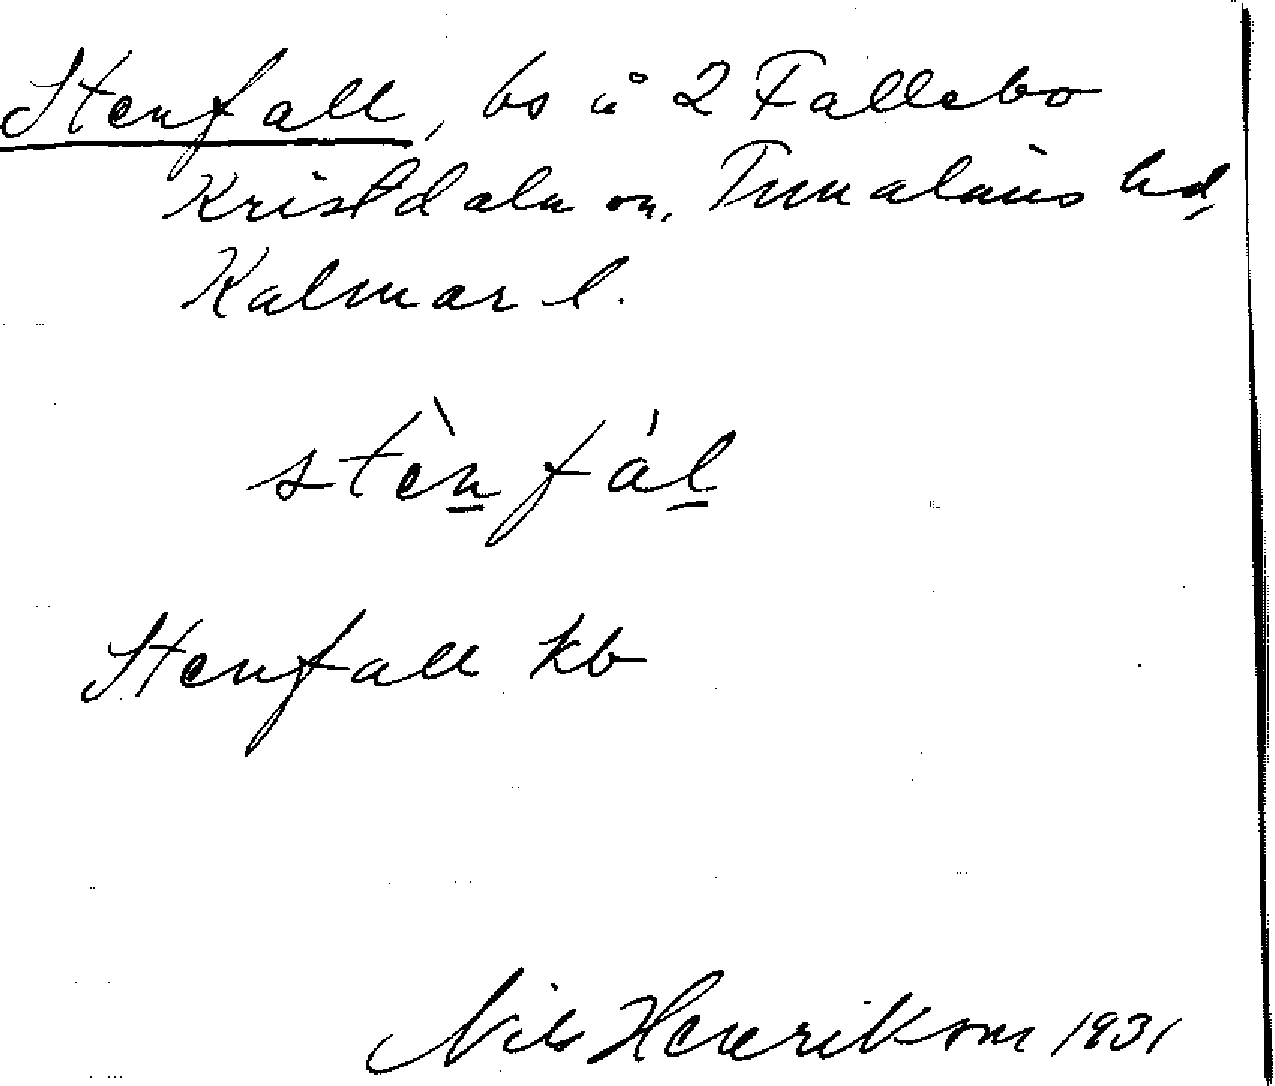 Stenfall, bs å 2 Fallebo
Kristdala sn, Tunaläns hd,
Kalmar l.
stè̀n̲fál̲
Stenfall kb
Nils Henrikson 1931